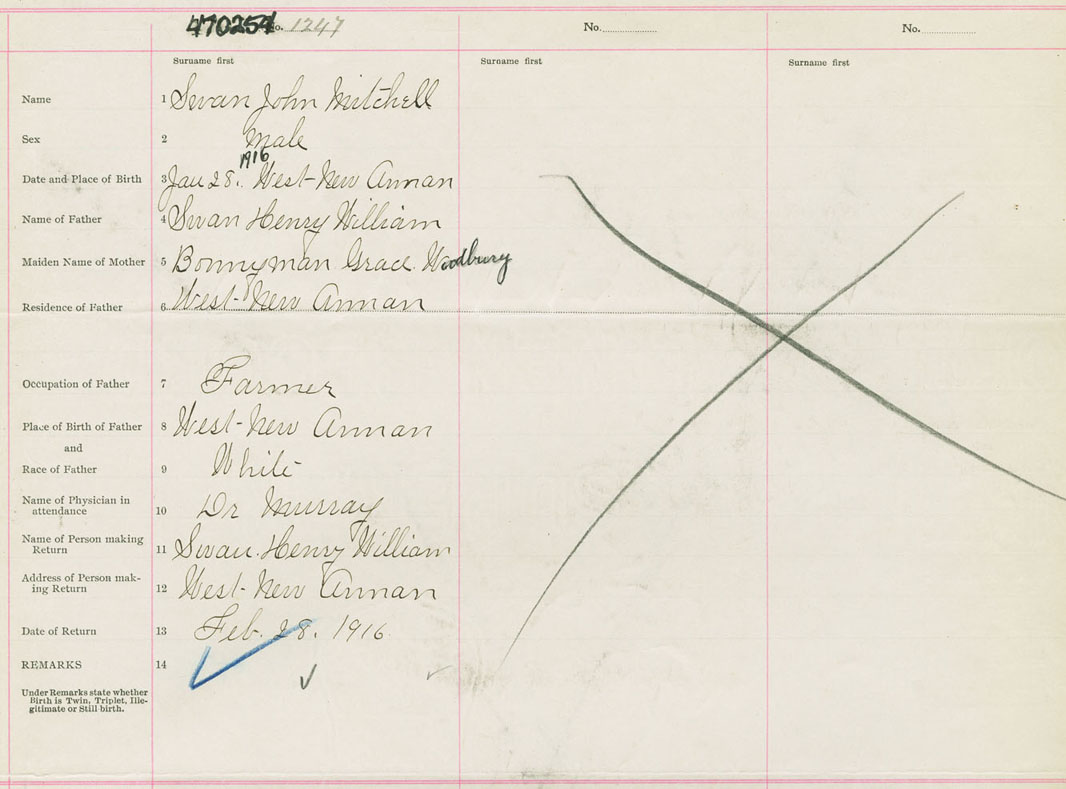 470254 No. 1247 No. No.
Surname first Surname first Surname first
Name 1 Swan John Mitchell
Sex 2 Male
1916
Date and Place of Birth 3 Jan 28. West-New Annan
Name of Father 4 Swan Henry William
Maiden Name of Mother 5 Bonnyman Grace Woodbury
Residence of Father 6 West-New Annan
Occupation of Father 7 Farmer
Place of Birth of Father 8 West-New Annan
and
Race of Father 9 White
Name of Physician in
attendance 10 Dr Murray
Name of Person making
Return 11 Swan Henry William
Address of Person mak-
ing Return 12 West-New Annan
Date of Return 13 Feb. 28. 1916.
REMARKS 14
Under Remarks state whether
Birth is Twin, Triplet, Ille-
gitimate or Still birth.